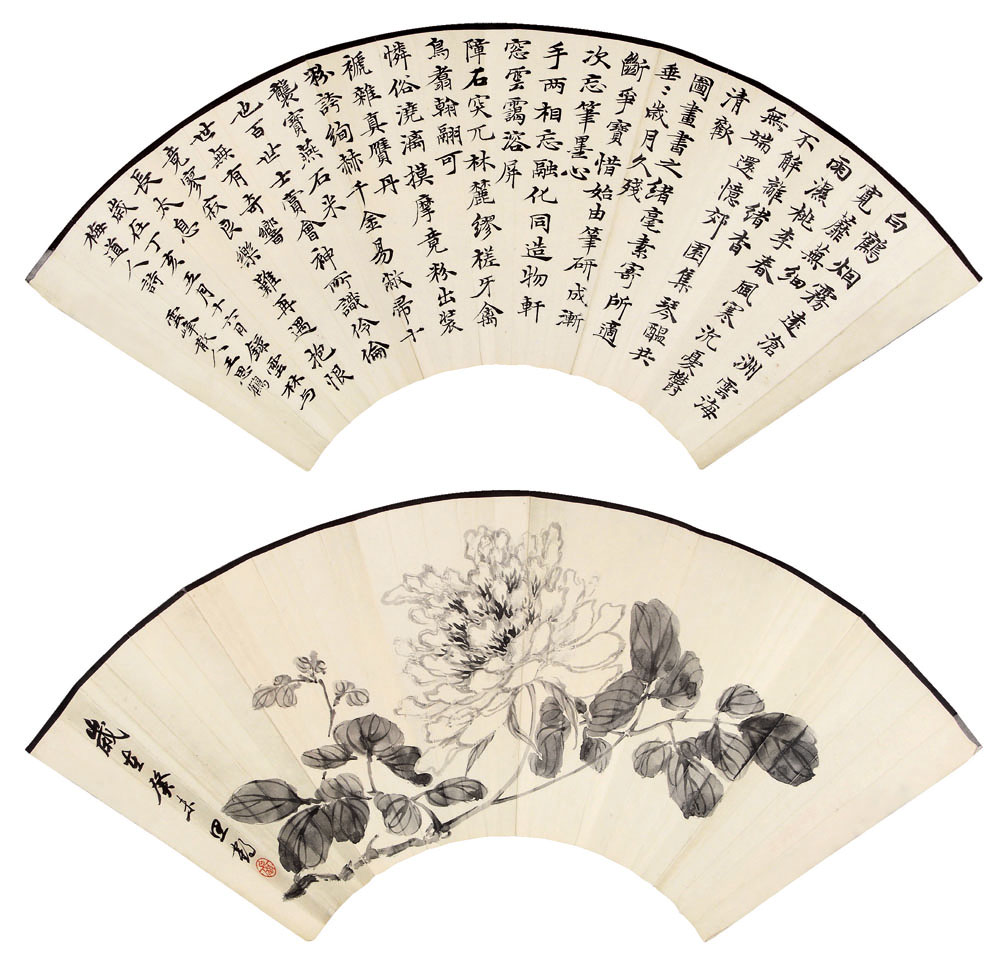 白鶴畑霧遠滄洲雲海
寬蘼蕪細
雨濕桃李春風寒沉冥欝
不解離緒杳
無端還憶郊園集琴醖共
清歡
圖畫書之緒毫素寄所適
垂〻歲月久殘
斷爭寶惜始由筆研成漸
次忘筆墨心
手两相忘融化同造物軒
窓雲靄溶屏
障石突兀林麓繆槎牙禽
鳥翥翰翮可
憐俗澆漓摸摩竟粉出裝
褫雜真贋丹
粉誇絢赫千金易敝帚十
襲寶燕石米
也百世士賞會神所識伶倫
世無有奇響
竟寥寂良樂難再遇抱恨
長太息
歲在丁亥五月十六日錄雲林与
梅道人詩 雲峰散人王思鶴
歲在癸